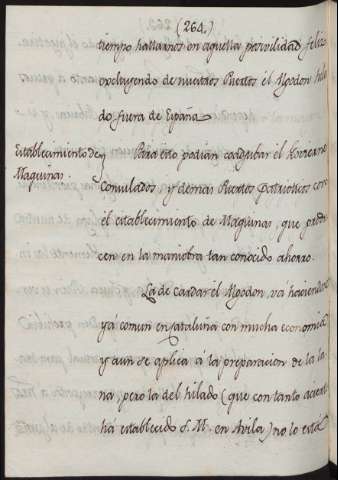 (264.)
tiempo hallarnos en aquella posivilidad feliz
excluyendo de nuestros Puertos el Algodon hila
do fuera de España.
Establecimiento de
Maquinas.
Para esto podian coadyubar el
Consulados, y demas Puertos Patrioticos con
él establecimiento de Maquinas, que produ
cen en la maniobra tan conocido ahorro.
La de cardar él Algodon, vá haciendose
yá comun en Cataluña con mucha economia
y aun se aplica á la preparacion de la la
na, pero la del hilado (que con tanto acierto
há establecido S. M. en Avila) no lo está